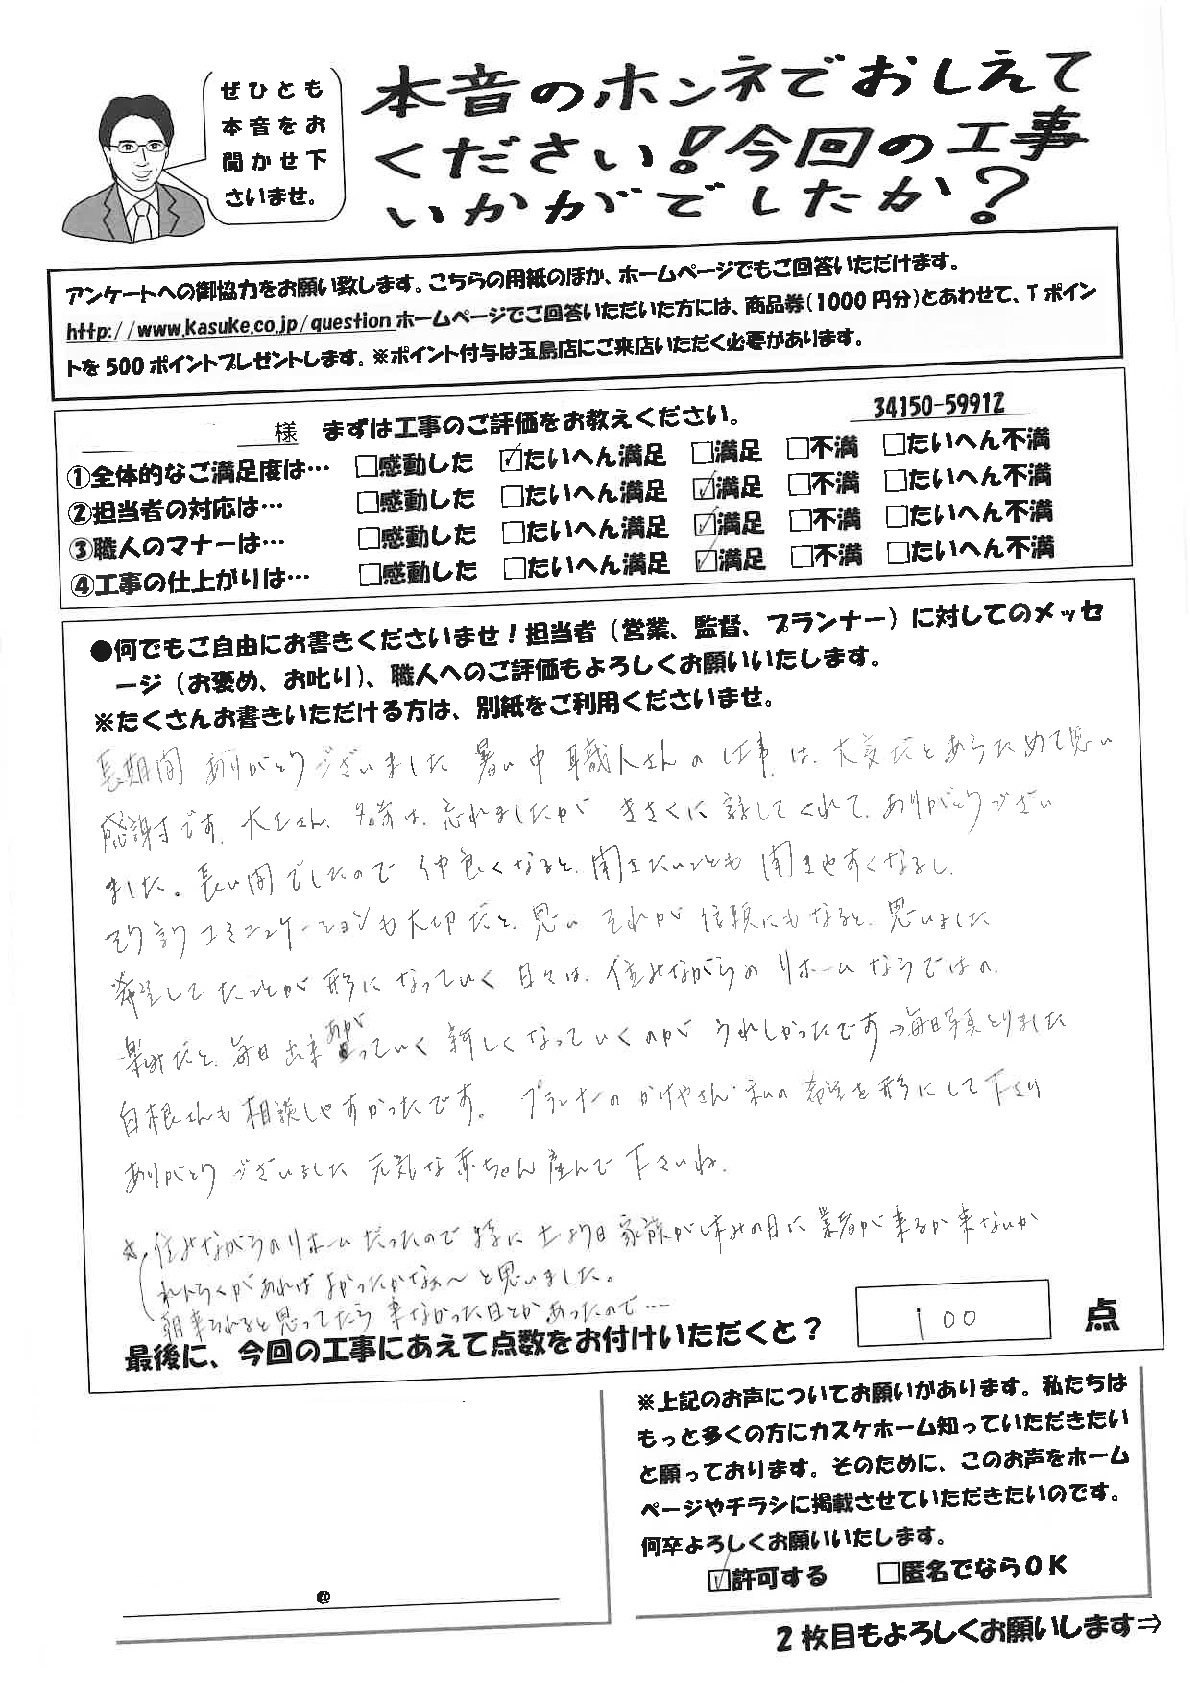 ぜひとも
本音をお
聞かせ下
さいませ。
本音のホンネでおしえて
ください！今回の工事
いかがでしたか？
アンケートへの御協力をお願い致します。こちらの用紙のほか、ホームページでもご回答いただけます。
http://www.kasuke.co.jp/questionホームページでご回答いただいた方には、商品券（1000円分）とあわせて、Tポイン
トを500ポイントプレゼントします。※ポイント付与は玉島店にご来店いただく必要があります。
様 まずは工事のご評価をお教えください。 34150-59912
①全体的なご満足度は… □感動した ☑たいへん満足 □満足 □不満 □たいへん不満
②担当者の対応は… □感動した □たいへん満足 ☑満足 □不満 □たいへん不満
③職人のマナーは… □感動した □たいへん満足 ☑満足 □不満 □たいへん不満
④工事の仕上がりは… □感動した □たいへん満足 ☑満足 □不満 □たいへん不満
●何でもご自由にお書きくださいませ！担当者（営業、監督、プランナー）に対してのメッセ
ージ（お褒め、お叱り）、職人へのご評価もよろしくお願いいたします。
※たくさんお書きいただける方は、別紙をご利用くださいませ。
長期間 ありがとうございました 暑い中 職人さんの仕事は、大変だとあらためて思い
感謝です。大工さん、名前は、忘れましたが きさくに話してくれて、ありがとうござい
ました。長い間でしたので 仲良くなると、聞きたいことも 聞きやすくなるし、
コミニュケーションも大切だと、思い それが 信頼にもなると、思いました
希望してたことが形になっていく日々は、住みながらのリホームならではの、
楽みだと、毎日出来あがっていく 新しくなっていくのが うれしかったです→毎日写真とりました
白根さんも相談しやすかったです。 プランナーの かけやさん 私の希望を形にして下さり
ありがとうございました 元気な赤ちゃん産んで下さいね。
☆住みながらのリホームだったので 特に土よう日 家族が休みの日に業者が来るか来ないか
れんらくがあれば よかったかなぁ〜と思いました。
朝来られると思ってたら 来なかった日とかあったので…
最後に、今回の工事にあえて点数をお付けいただくと？ 100 点
※上記のお声についてお願いがあります。私たちは
もっと多くの方にカスケホーム知っていただきたい
と願っております。そのために、このお声をホーム
ページやチラシに掲載させていただきたいのです。
何卒よろしくお願いいたします。
☑許可する □匿名でならOK
@
2枚目もよろしくお願いします⇒